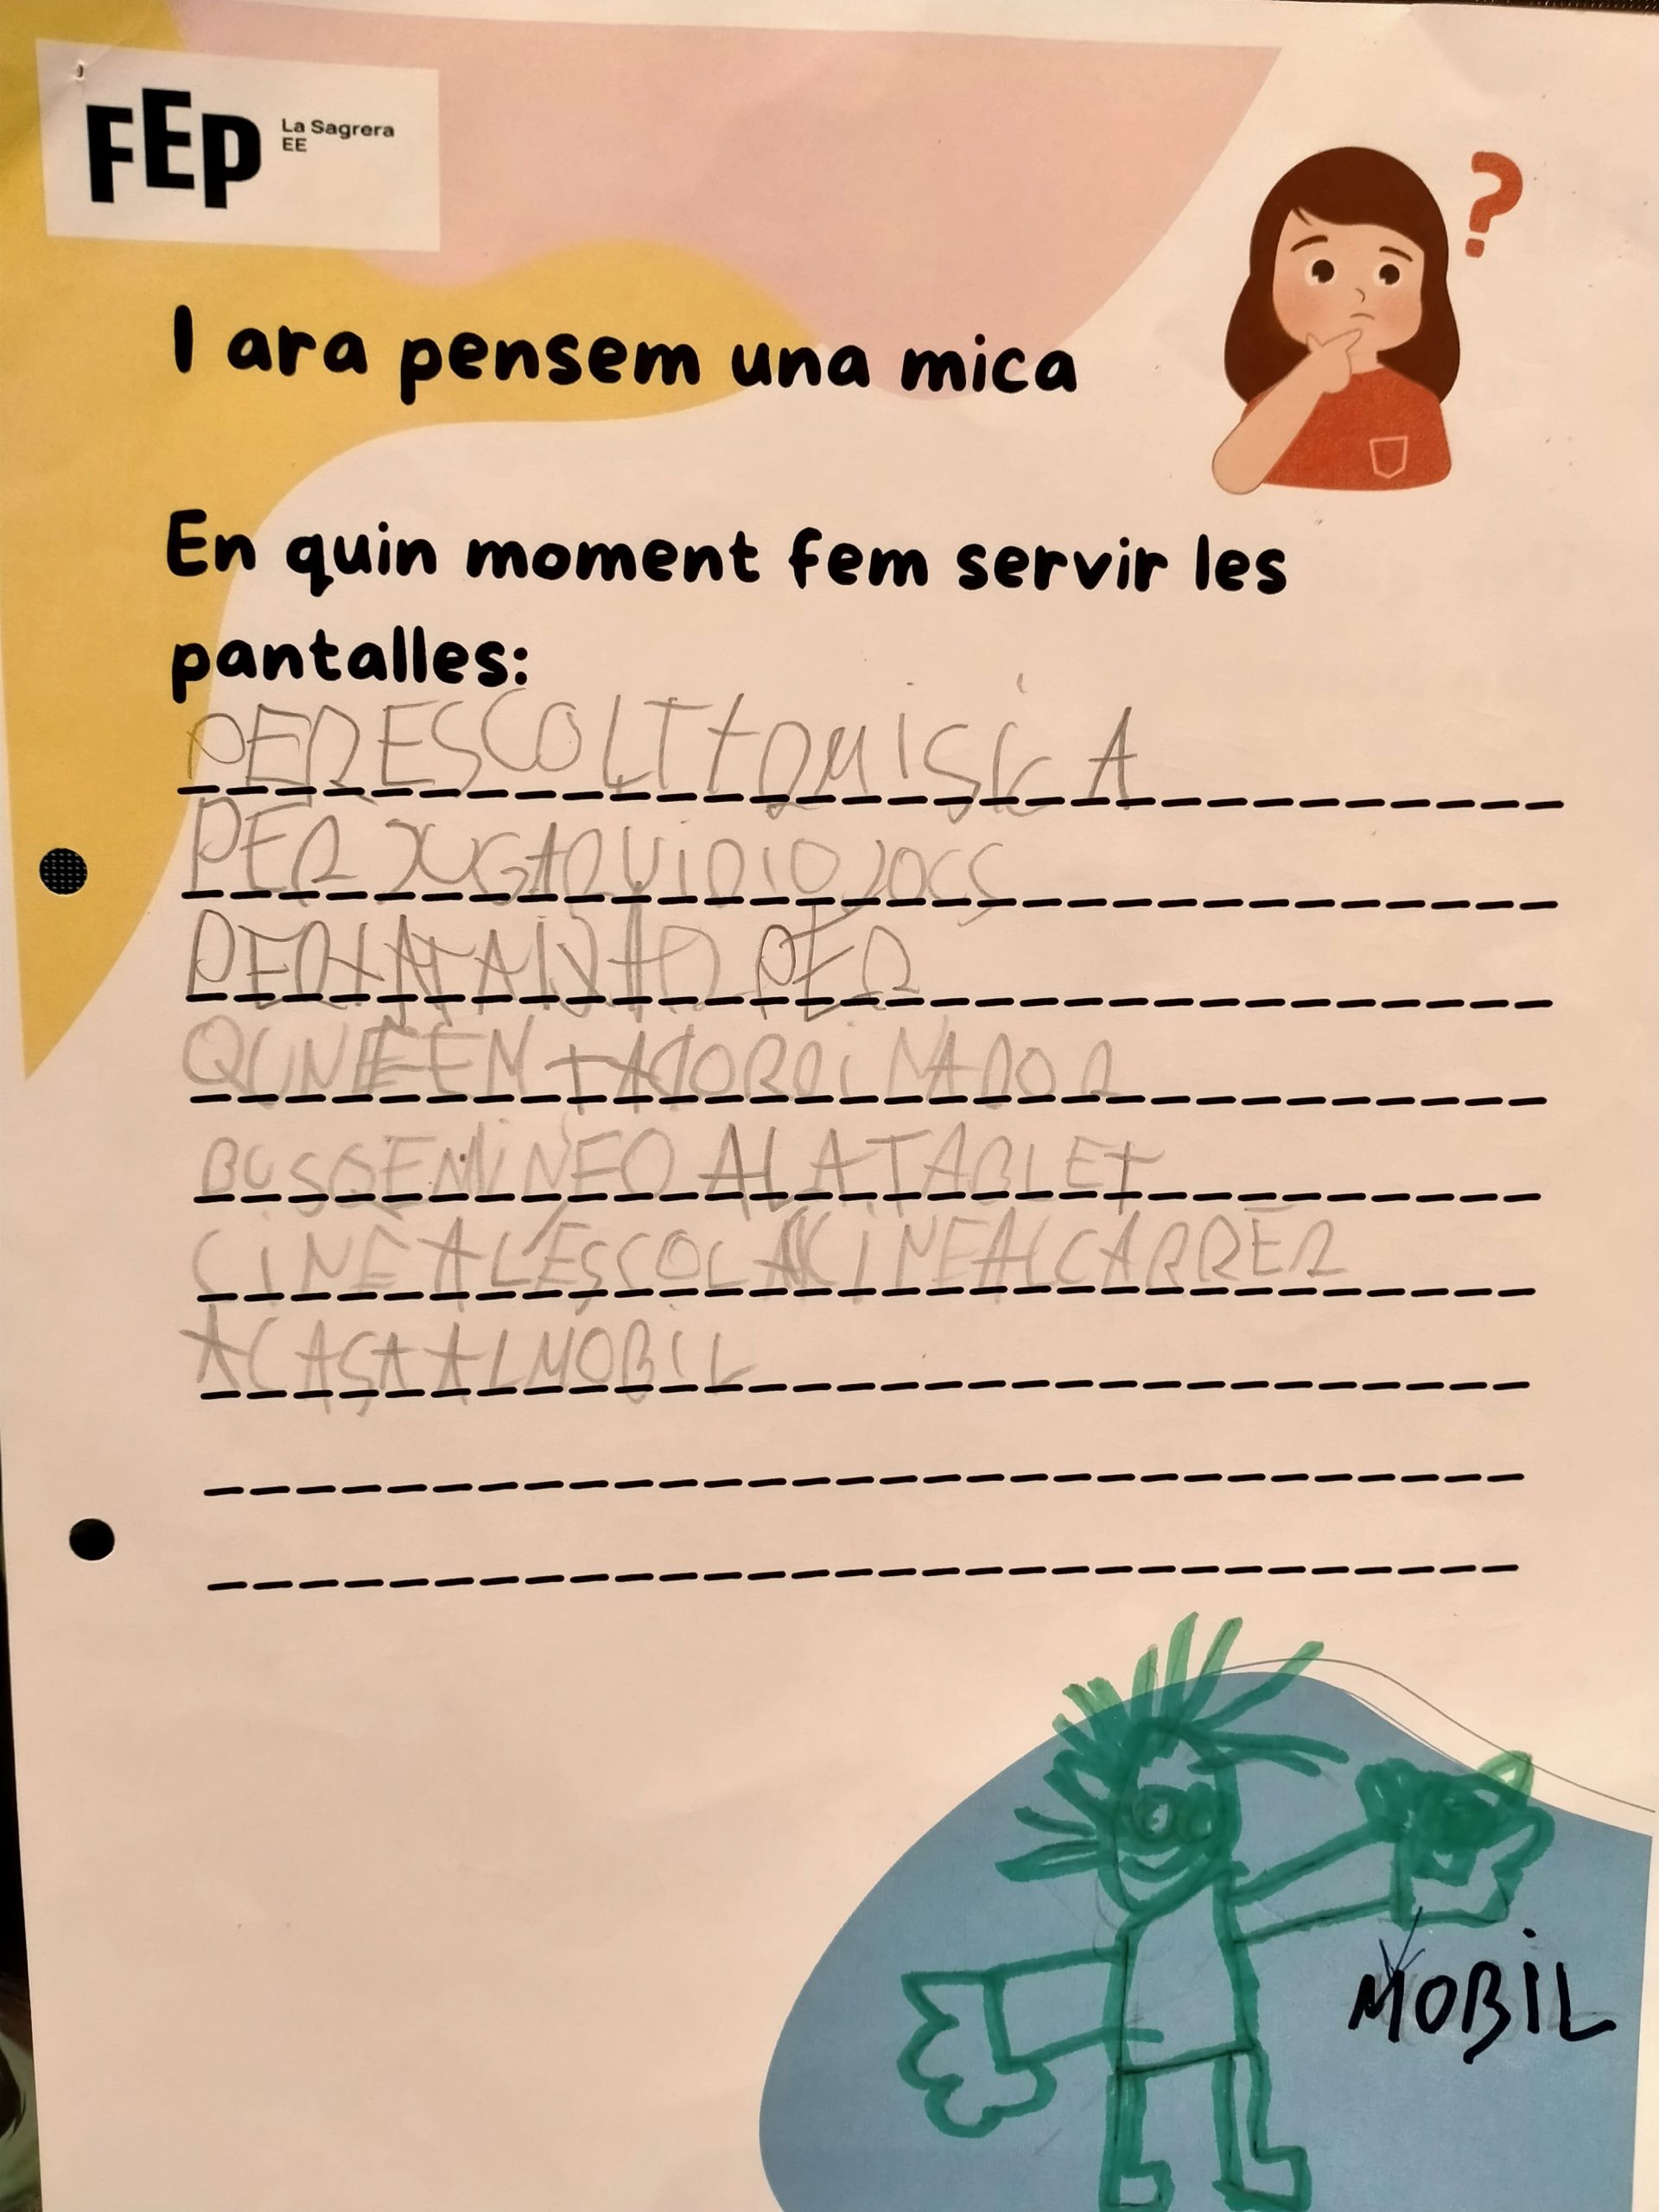 FEP La Sagrera
EE
?
I ara pensem una mica
En quin moment fem servir les
pantalles:
PER ESCOLTAR MÚSICA
PER JUGAR VIDIOJOCS
PER PER
QUN FEM ORDINADOR
BUSQEM INFO A LA TABLET
CINE A L'ESCOLA CINE AL CARRER
A CASA AL MOBIL
MOBIL